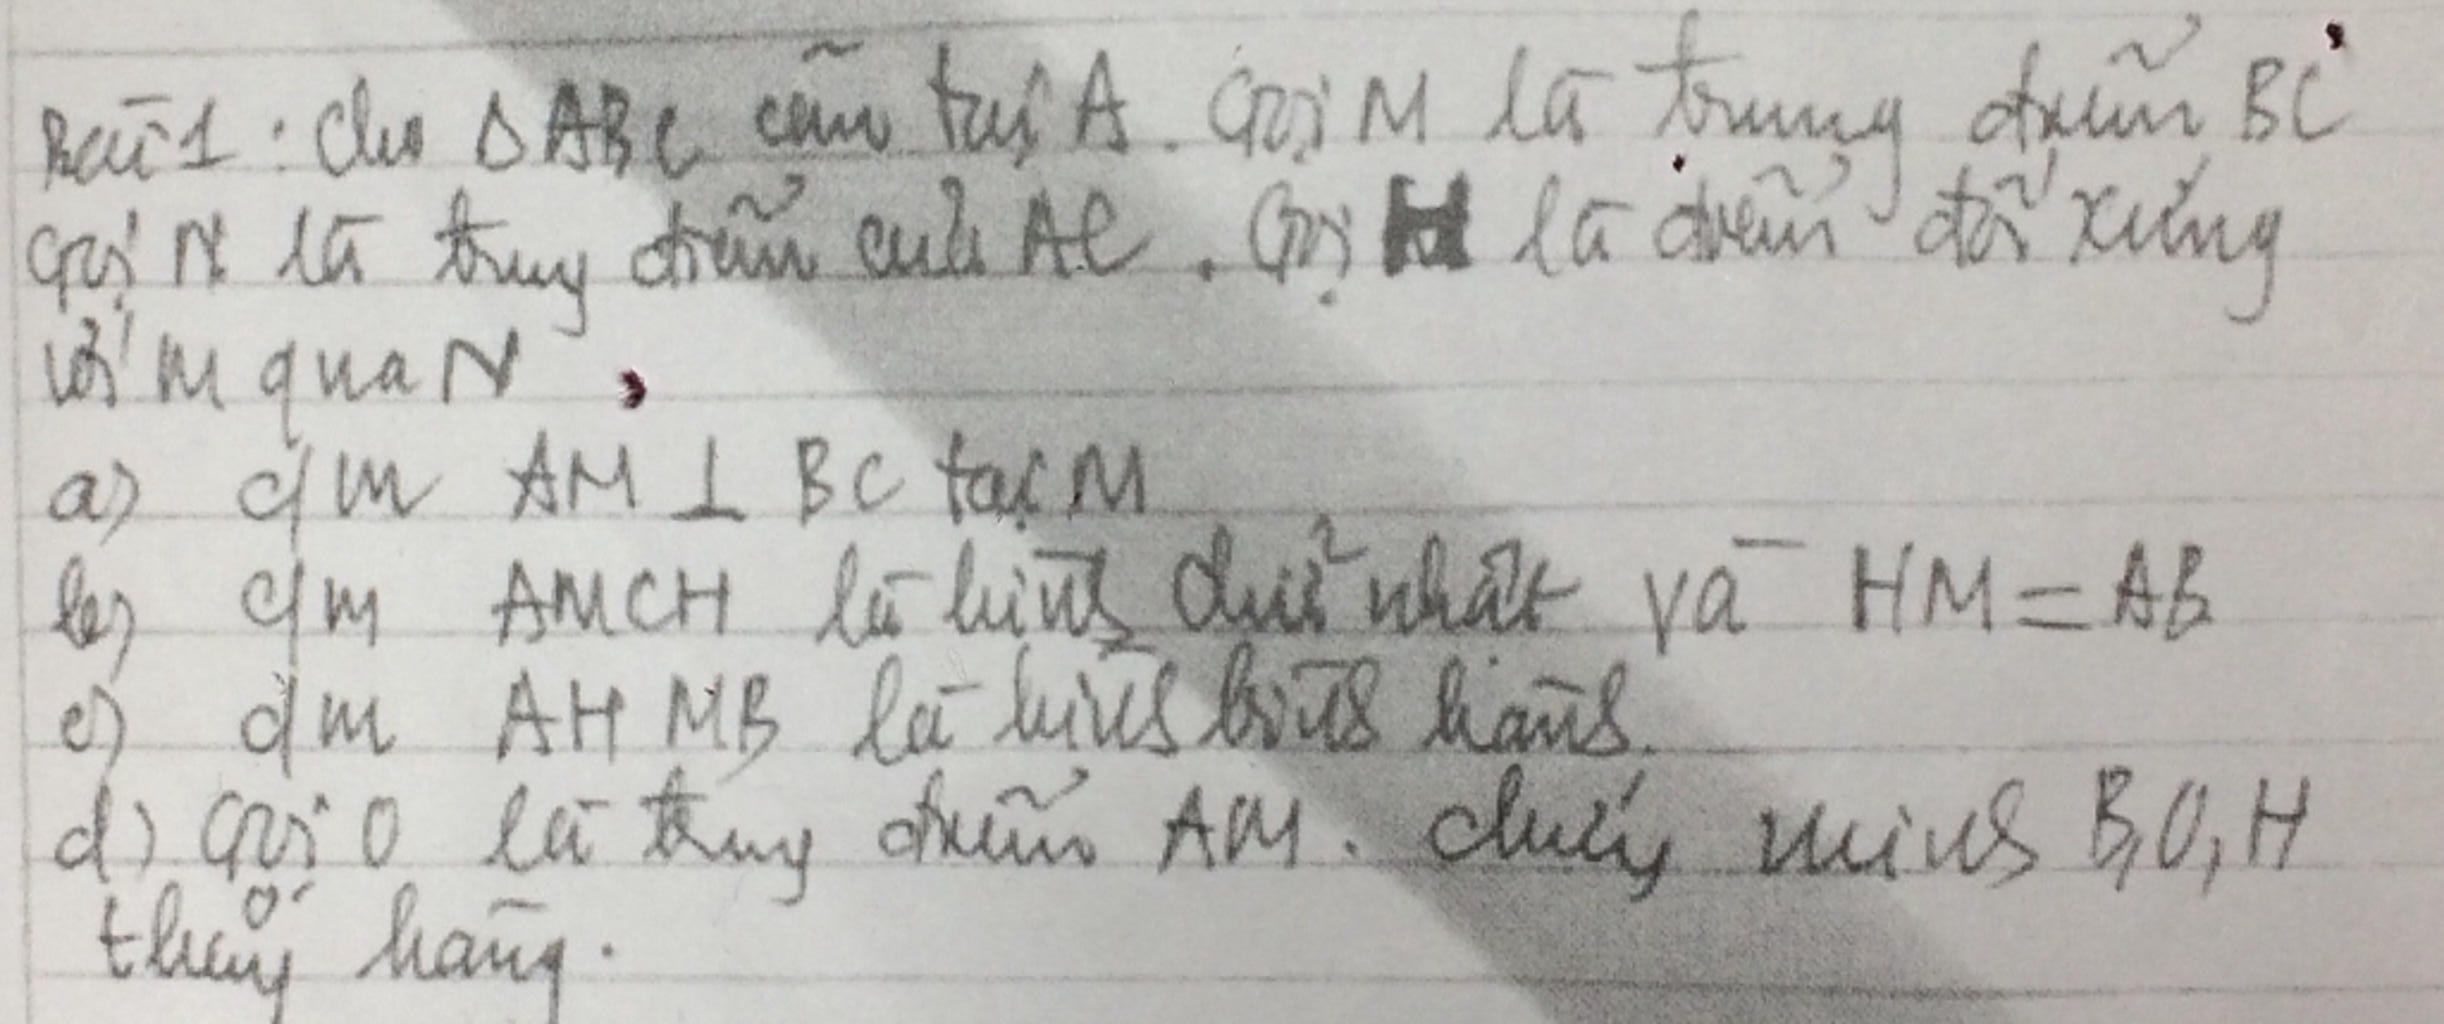 Bài 1: Cho Δ ABC cân tại A. Gọi M là trung điểm BC
Gọi N là trung điểm của AC. Gọi H là điểm đối xứng
với M qua N.
a) c/m AM ⊥ BC tại M
b) c/m AMCH là hình chữ nhật và HM = AB
c) c/m AHMB là hình bình hành.
d) Gọi O là trung điểm AM. Chứng minh B, O, H
thẳng hàng.